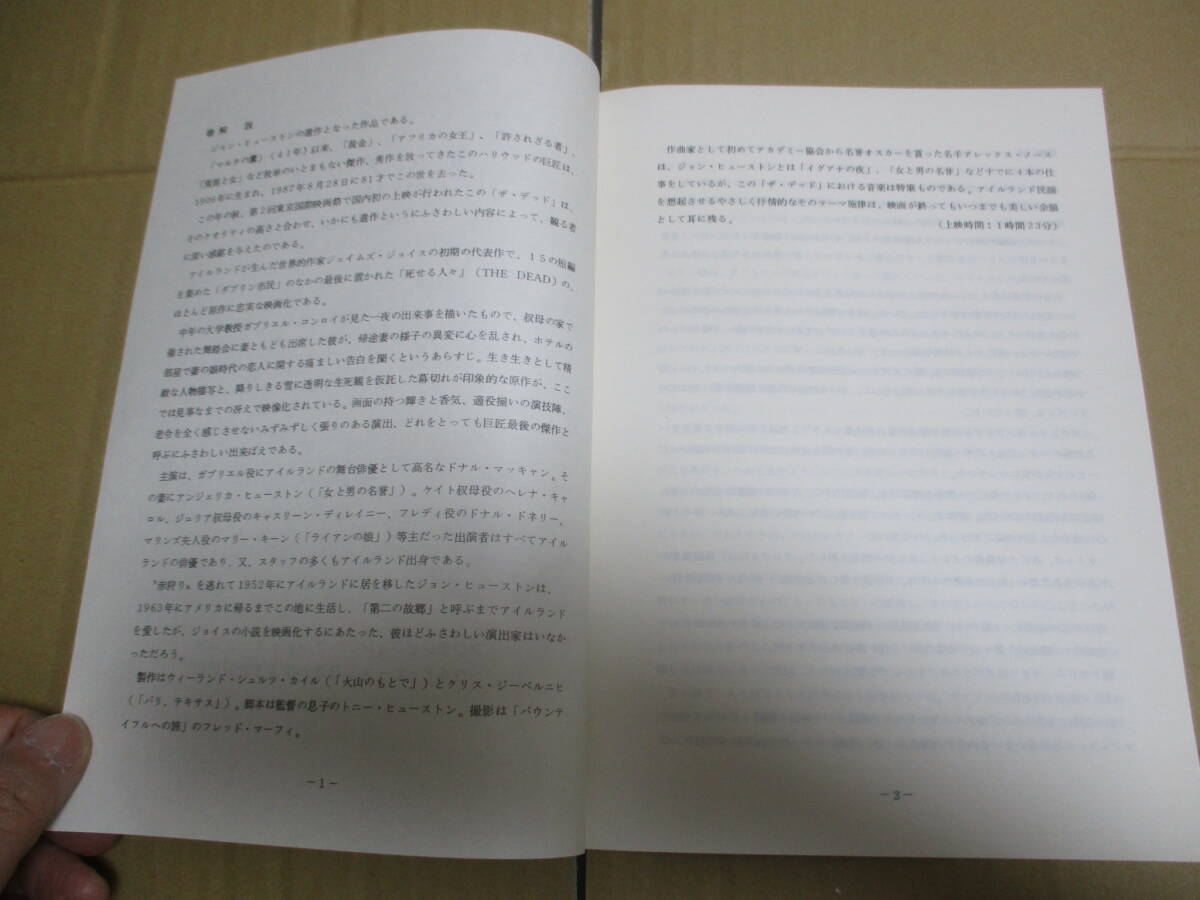 ●解　説
ジョン・ヒューストンの遺作となった作品である。
「マルタの鷹」（４１年）以来、「黄金」、「アフリカの女王」、「許されざる者」、
「荒馬と女」など枚挙のいとまもない傑作、秀作を放ってきたこのハリウッドの巨匠は、
1906年に生まれ、1987年８月28日に81才でこの世を去った。
この年の秋、第２回東京国際映画祭で国内初の上映が行われたこの「ザ・デッド」は、
そのクオリティの高さと合わせ、いかにも遺作というにふさわしい内容によって、観る者
に深い感銘を与えたのである。
アイルランドが生んだ世界的作家ジェイムズ・ジョイスの初期の代表作で、１５の短編
を集めた「ダブリン市民」のなかの最後に置かれた「死せる人々」（THE DEAD）の、
ほとんど原作に忠実な映画化である。
中年の大学教授ガブリエル・コンロイが見た一夜の出来事を描いたもので、叔母の家で
催された舞踏会に妻ともども出席した彼が、帰途妻の様子の異変に心を乱され、ホテルの
部屋で妻の娘時代の恋人に関する痛ましい告白を聞くというあらすじ。生き生きとして精
緻な人物描写と、降りしきる雪に透明な生死観を仮託した幕切れが印象的な原作が、ここ
では見事なまでの冴えで映像化されている。画面の持つ輝きと香気、適役揃いの演技陣、
老令を全く感じさせないみずみずしく張りのある演出、どれをとっても巨匠最後の傑作と
呼ぶにふさわしい出来ばえである。
主演は、ガブリエル役にアイルランドの舞台俳優として高名なドナル・マッキャン。そ
の妻にアンジェリカ・ヒューストン（「女と男の名誉」）。ケイト叔母役のヘレナ・キャ
ロル、ジュリア叔母役のキャスリーン・ディレイニー、フレディ役のドナル・ドネリー、
マリンズ夫人役のマリー・キーン（「ライアンの娘」）等主だった出演者はすべてアイル
ランドの俳優であり、又、スタッフの多くもアイルランド出身である。
〝赤狩り〟を逃れて1952年にアイルランドに居を移したジョン・ヒューストンは、
1963年にアメリカに帰るまでこの地に生活し、「第二の故郷」と呼ぶまでアイルランド
を愛したが、ジョイスの小説を映画化するにあたった、彼ほどふさわしい演出家はいなか
っただろう。
製作はウィーランド・シュルツ・カイル（「火山のもとで」）とクリス・ジーベルニヒ
（「パリ、テキサス」）。脚本は監督の息子のトニー・ヒューストン。撮影は「バウンテ
イフルへの旅」のフレッド・マーフィ。
－1－
作曲家として初めてアカデミー協会から名誉オスカーを貰った名手アレックス・ノース
は、ジョン・ヒューストンとは「イグアナの夜」、「女と男の名誉」などすでに４本の仕
事をしているが、この「ザ・デッド」における音楽は特筆ものである。アイルランド民謡
を想起させるやさしく抒情的なそのテーマ旋律は、映画が終ってもいつまでも美しい余韻
として耳に残る。
（上映時間：１時間２３分）
－2－